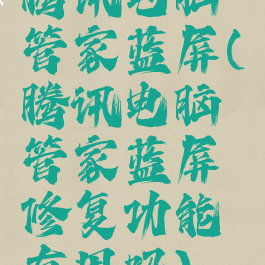 腾讯电脑
管家蓝屏(
腾讯电脑
管家蓝屏
修复功能